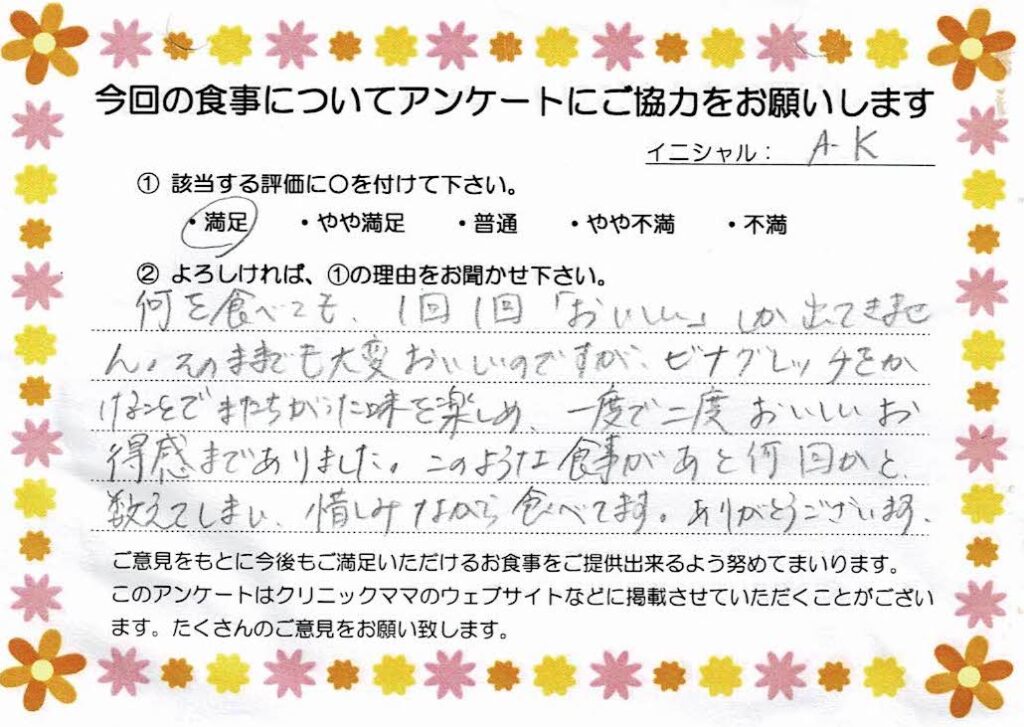 今回の食事についてアンケートにご協力をお願いします
イニシャル： A-K
① 該当する評価に○を付けて下さい。
・満足 ・やや満足 ・普通 ・やや不満 ・不満
② よろしければ、①の理由をお聞かせ下さい。
何を食べても、1回1回「おいしい」しか出てきませ
ん。そのままでも大変おいしいのですが、ビナグレッチをか
けることでまたちがった味を楽しめ、一度で二度おいしいお
得感までありました。このような食事があと何回かと、
数えてしまい、惜しみながら食べてます。ありがとうございます。
ご意見をもとに今後もご満足いただけるお食事をご提供出来るよう努めてまいります。
このアンケートはクリニックママのウェブサイトなどに掲載させていただくことがござい
ます。たくさんのご意見をお願い致します。